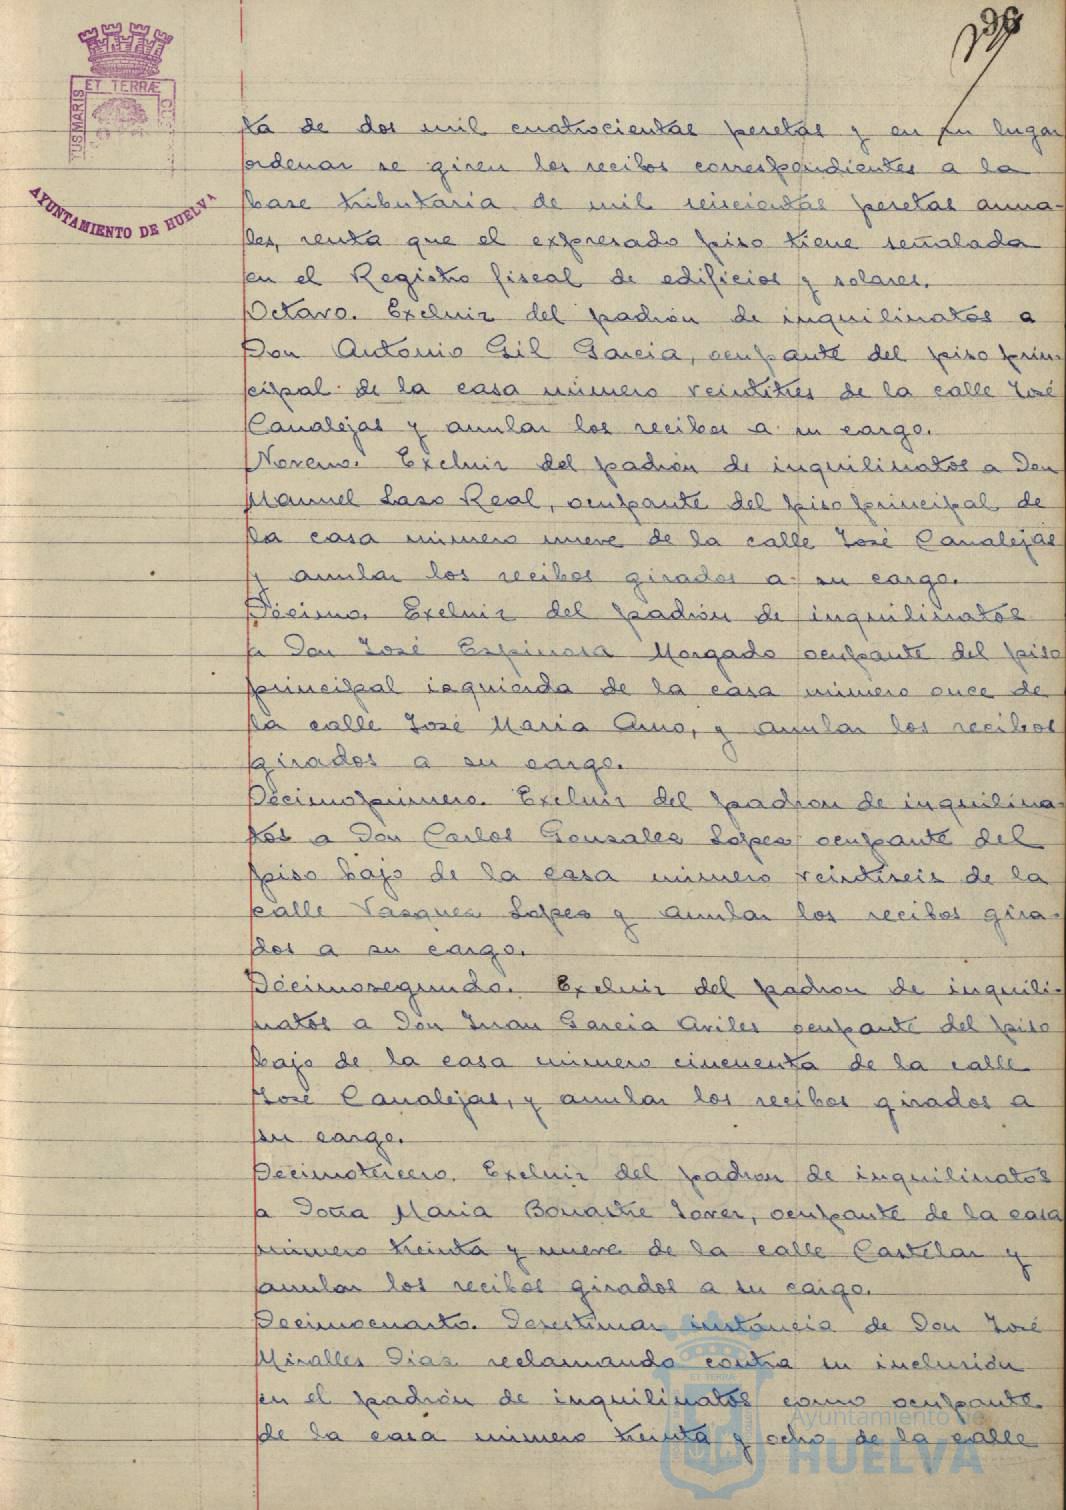 96
ET TERRÆ
TUS MARIS
AYUNTAMIENTO DE HUELVA
ta de dos mil cuatrocientas pesetas y en su lugar
ordenar se giren los recibos correspondientes a la
base tributaria de mil seiscientas pesetas anua-
les, renta que el expresado piso tiene señalada
en el Registro fiscal de edificios y solares.
Octavo. Excluir del padrón de inquilinatos a
Don Antonio Gil Garcia, ocupante del piso prin-
cipal de la casa número veintitres de la calle José
Canalejas y anular los recibos a su cargo.
Noveno. Excluir del padrón de inquilinatos a Don
Manuel Laso Real, ocupante del piso principal de
la casa número nueve de la calle José Canalejas
y anular los recibos girados a su cargo.
Décimo. Excluir del padrón de inquilinatos
a Don José Espinosa Morgado ocupante del piso
principal izquierda de la casa número once de
la calle José Maria Amo, y anular los recibos
girados a su cargo.
Décimoprimero. Excluir del padron de inquilina-
tos a Don Carlos Gonzalez Lopez ocupante del
piso bajo de la casa número veintiseis de la
calle Vazquez Lopez y anular los recibos gira-
dos a su cargo.
Décimosegundo. Excluir del padron de inquili-
natos a Don Juan Garcia Aviles ocupante del piso
bajo de la casa número cincuenta de la calle
José Canalejas, y anular los recibos girados a
su cargo.
Décimotercero. Excluir del padron de inquilinatos
a Doña Maria Bonastre Jover, ocupante de la casa
número treinta y nueve de la calle Castelar y
anular los recibos girados a su cargo.
Decimocuarto. Desestimar instancia de Don José
Miralles Diaz reclamando contra su inclusión
en el padrón de inquilinatos como ocupante
de la casa número treinta y ocho de la calle
Ayuntamiento de
HUELVA